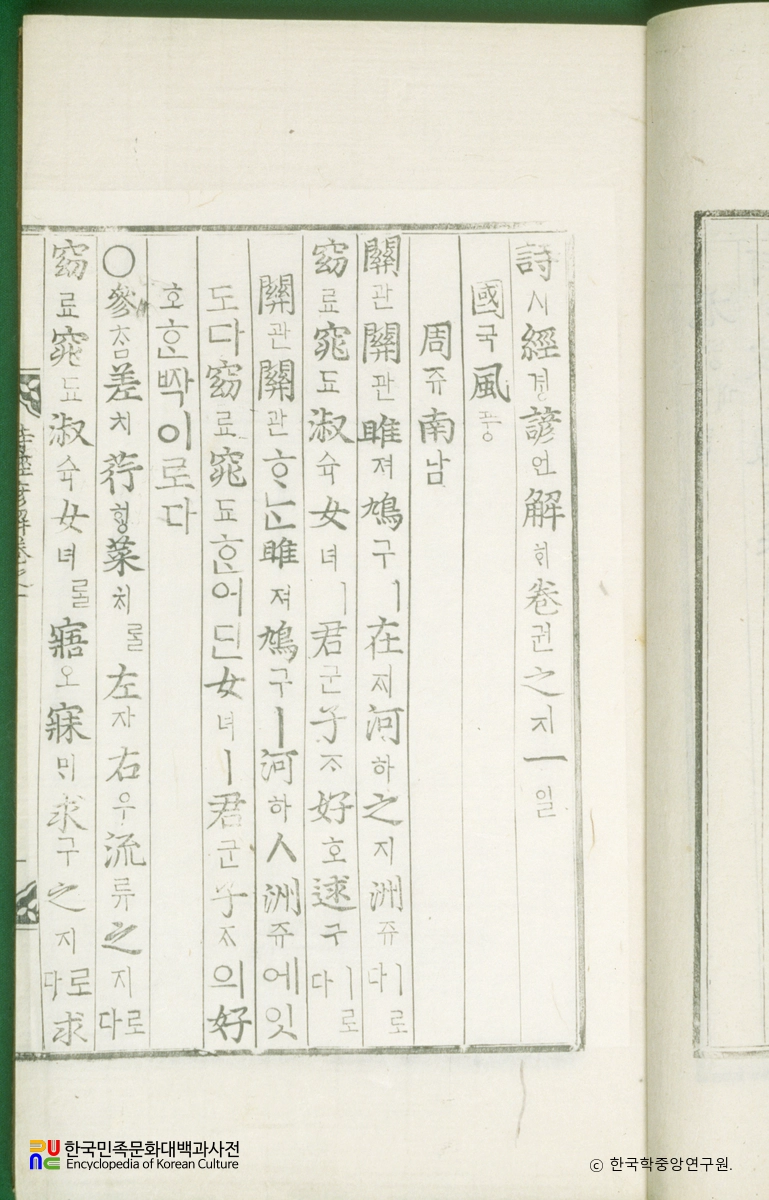 詩시經경諺언解ᄒᆡ卷권之지一일
國국風풍
周쥬南남
關관關관雎져鳩구ㅣ在ᄌᆡ河하之지洲쥬ㅣ로다
窈료窕됴淑슉女녀ㅣ君군子ᄌᆞ好호逑구ㅣ로다
關관關관ᄒᆞᄂᆞᆫ雎져鳩구ㅣ河하ㅅ洲쥬에잇
도다窈료窕됴ᄒᆞᆫ어딘女녀ㅣ君군子ᄌᆞ의好
호ᄒᆞᆫᄧᅡᆨ이로다
○參ᄎᆞᆷ差치荇ᄒᆡᆼ菜ᄎᆡᄅᆞᆯ左자右우流류之지로다
窈료窕됴淑슉女녀ᄅᆞᆯ寤오寐ᄆᆡ求구之지로다求
詩經諺解卷之一
한국민족문화대백과사전
Encyclopedia of Korean Culture
© 한국학중앙연구원.